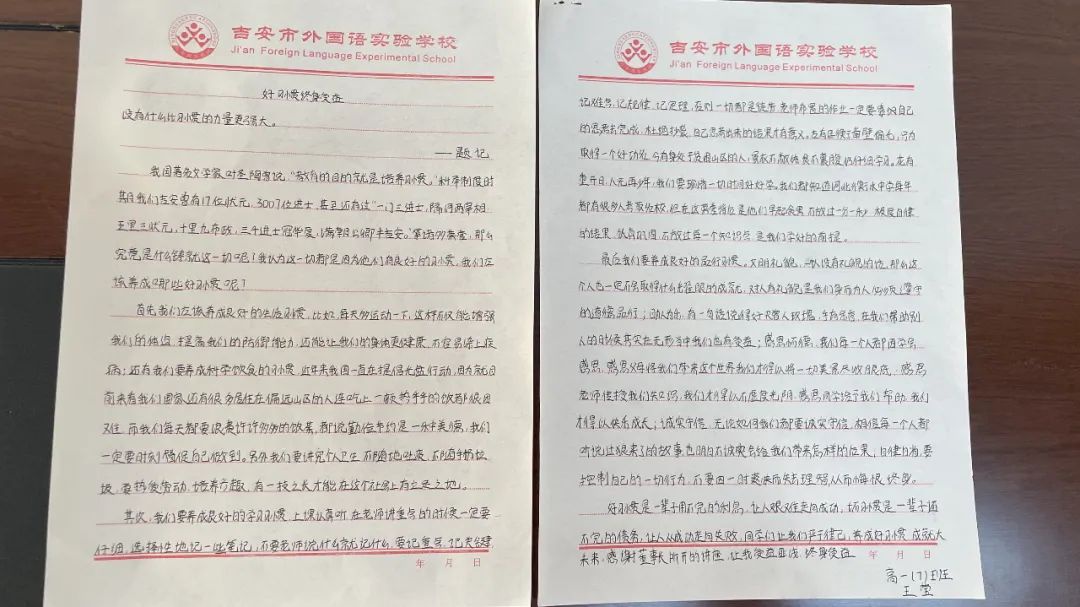 吉安市外国语实验学校
Ji'an Foreign Language Experimental School
好习惯终身受益
没有什么比习惯的力量更强大。
——题记
我国著名文学家叶圣陶曾说，“教育的目的就是培养习惯。”科举制度时
期我们吉安曾有17位状元，3007位进士，甚至还有过“一门三进士，隔河两宰相
五里三状元，十里九布政，三千进士冠华夏，满朝公卿半吉安。”等诸多美誉，那么
究竟是什么铸就这一切呢？我认为这一切都是因为他们有良好的习惯，我们应
该养成哪些好习惯呢？
首先我们应该养成良好的生活习惯，比如每天多运动一下，这样不仅能增强
我们的体质，提高我们的防御能力，还能让我们的身体更健康，不容易得上疾
病；还有我们要养成科学饮食的习惯，近年来我国一直在提倡光盘行动，因为就目
前来看我们国家还有很多居住在偏远山区的人连吃上一顿热乎乎的饭都很困
难，而我们每天都要浪费许许多多的饭菜，都说勤俭节约是一种美德，我们
一定要时刻督促自己做到。另外我们要讲究个人卫生，不随地吐痰，不随手扔垃
圾，要热爱劳动，培养乐趣，有一技之长才能在这个社会上有立足之地。
其次，我们要养成良好的学习习惯，上课认真听，在老师讲重点的时候一定要
仔细，选择性地记一些笔记，不要老师说什么就记什么，要记重点，记关键
年 月 日
吉安市外国语实验学校
Ji'an Foreign Language Experimental School
记难点，记规律，记定理，否则一切都是徒劳，老师布置的作业一定要靠自己
的思考去完成，杜绝抄袭，自己思考出来的结果才有意义。古有匡衡凿壁偷光，只为
取得一个好功名，今有身处于贫困山区的人，家衣不蔽体食不裹腹仍坚持学习。花有
重开日，人无再少年，我们要珍惜一切时间好好学。我们都知道河北衡水中学每年
都有很多人考取名校，但在这荣誉背后是他们早起贪黑不放过一分一秒，极度自律
的结果，认真巩固，不放过每一个知识点，是我们学好的前提。
最后我们要养成良好的品行习惯。文明礼貌，一个人没有礼貌的话，那么这
个人也一定不会取得什么老崔眼的成就，对人有礼貌是我们身而为人必须遵守
的道德品行；助人为乐，有一句话说得好，赠人玫瑰，手有余香，在我们帮助别
人的时候其实在无形当中我们也有受益；感恩所得，我们每一个人都因学会
感恩，感恩父母将我们带来这个世界我们才得以将一切美景尽收眼底，感恩
老师传授我们知识，我们才得以不虚度光阴，感恩同学给予我们帮助，我们
才得以快乐成长；诚实守信，无论如何我们都要诚实守信，相信每一个人都
听说过狼来了的故事也明白不诚实会给我们带来怎样的后果，自律自省，要
控制自己的一切行为，不要因一时爽快而失去理智从而悔恨终身。
好习惯是一辈子用不完的利息，让人艰难走向成功，坏习惯是一辈子还
不完的债务，让人从成功走向失败，同学们让我们严于律己，养成好习惯，成就大
未来，感谢董事长所开的讲座，让我受益匪浅，终身受益
年 月 日
高一（7）班
王莹